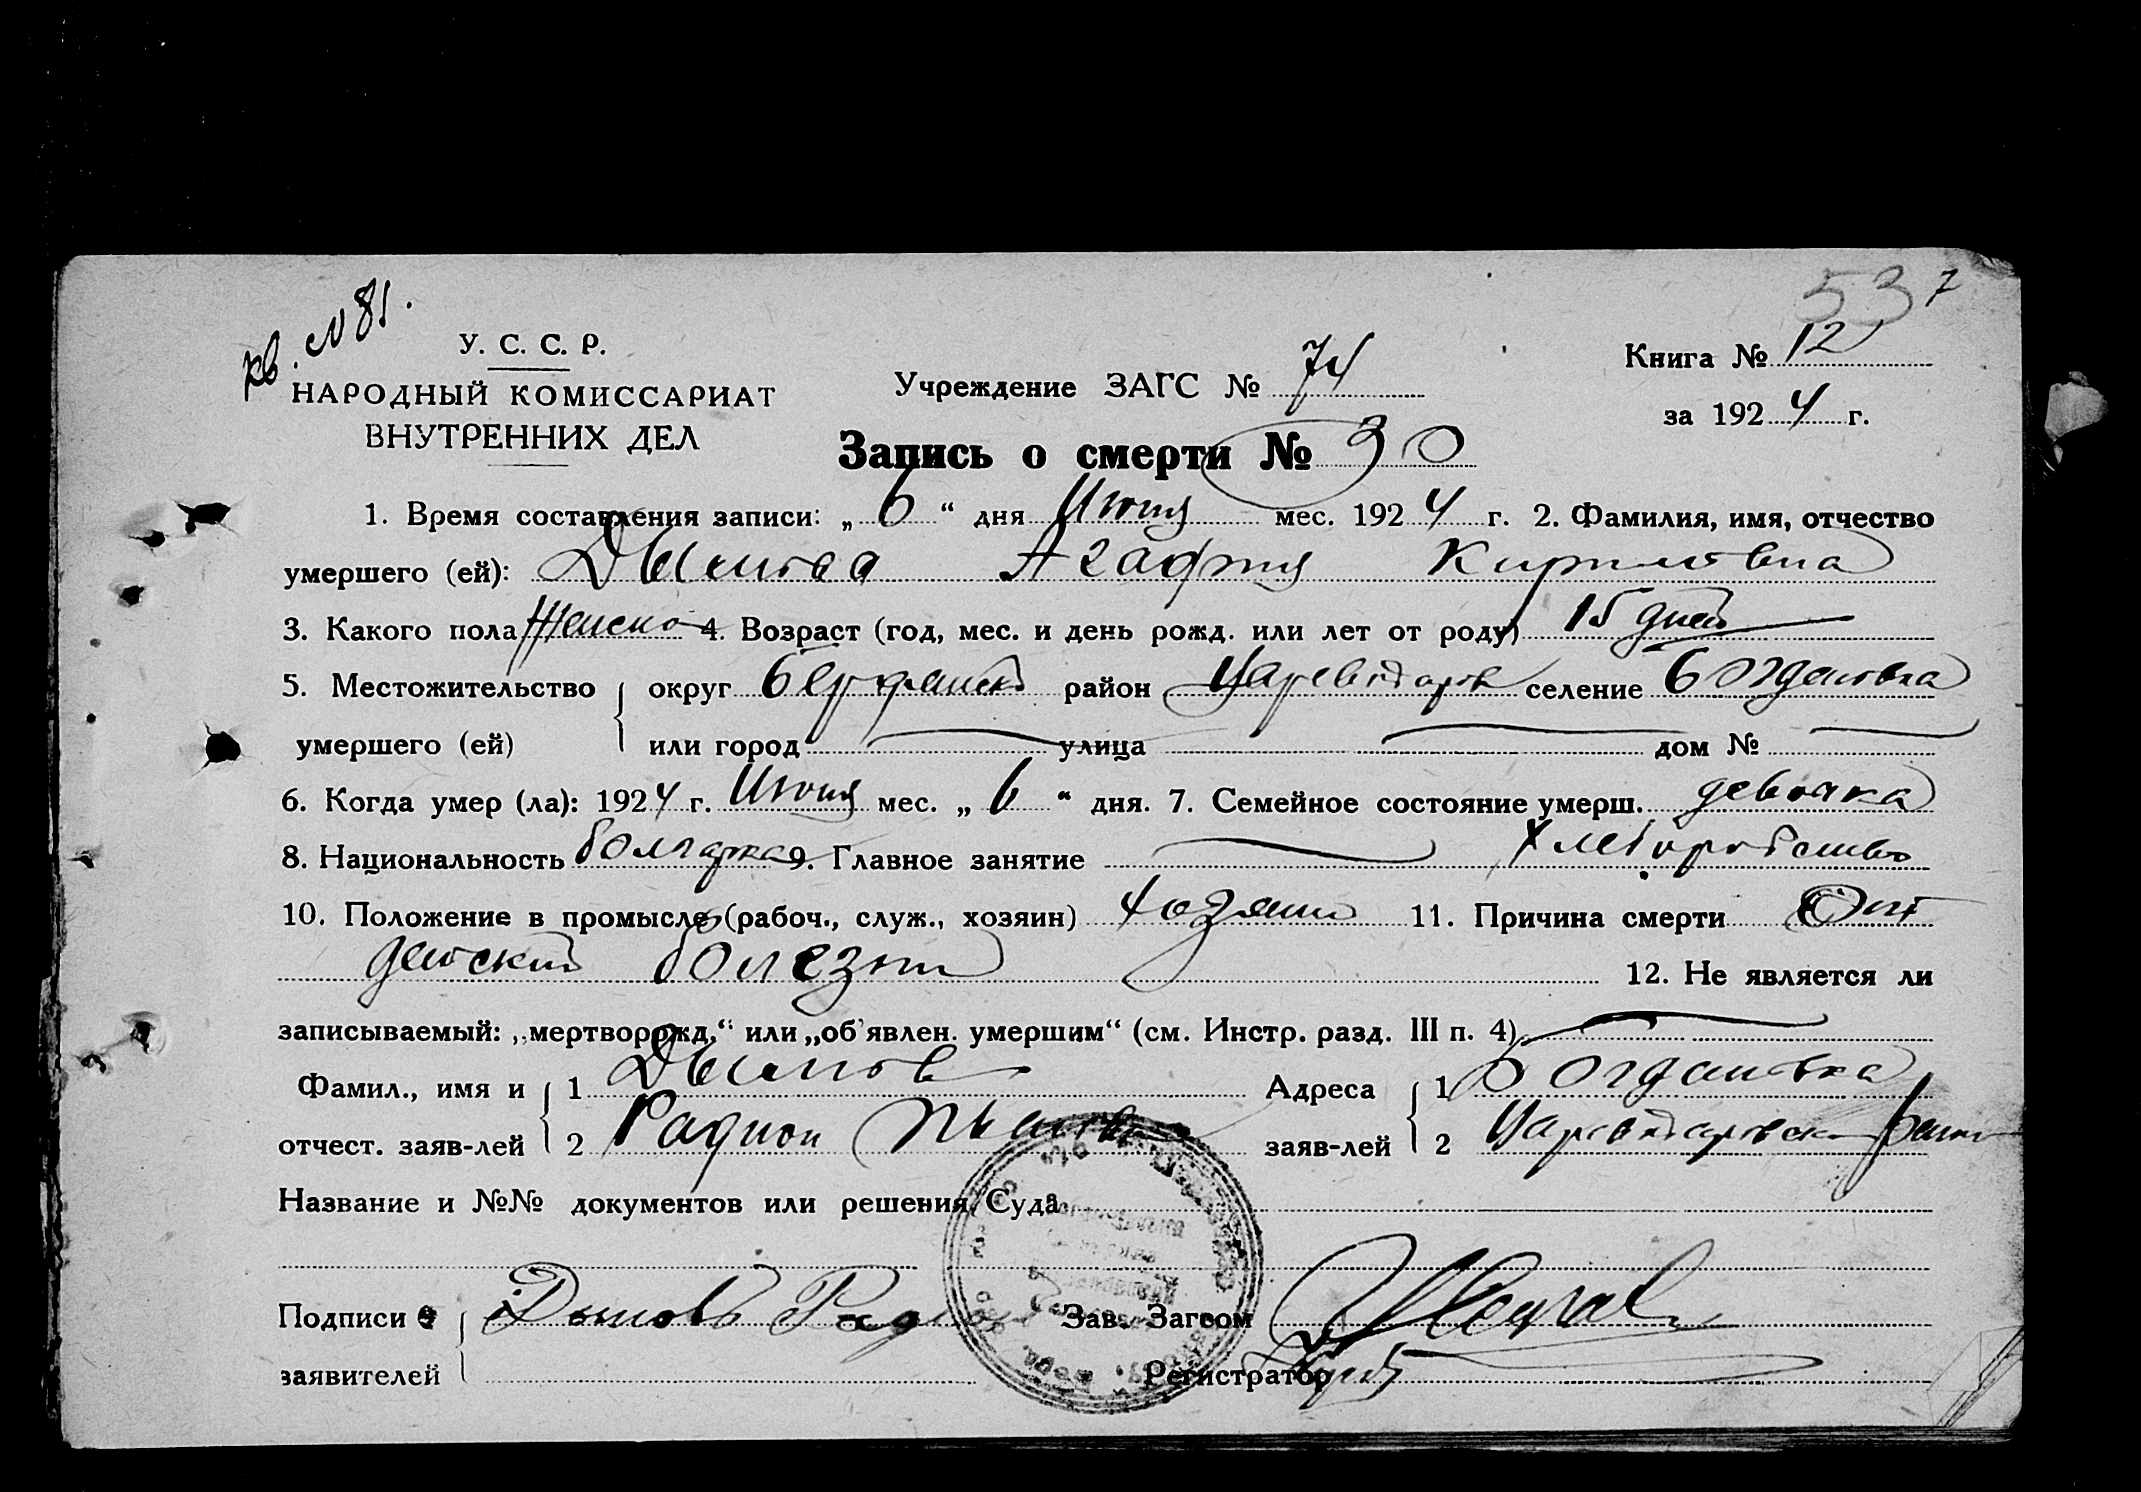 53 7
кв. № 81.
У. С. С. Р.
НАРОДНЫЙ КОМИССАРИАТ
ВНУТРЕННИХ ДЕЛ
Учреждение ЗАГС № 74
Книга № 12
за 1924 г.
Запись о смерти № 30
1. Время составления записи: „6“ дня Июня мес. 1924 г. 2. Фамилия, имя, отчество
умершего (ей): Дымова Агафия Кириловна
3. Какого пола Женско 4. Возраст (год, мес. и день рожд. или лет от роду) 15 дней
5. Местожительство округ Бердянск район Цареводаров селение Богдановка
умершего (ей) или город улица дом №
6. Когда умер (ла): 1924 г. Июня мес. „6“ дня. 7. Семейное состояние умерш. девочка
8. Национальность болгарка 9. Главное занятие Хлеборобство
10. Положение в промысле (рабоч., служ., хозяин) хозяин 11. Причина смерти От
детский болезни 12. Не является ли
записываемый: „мертворожд.“ или „об'явлен. умершим“ (см. Инстр. разд. III п. 4)
Фамил., имя и 1 Дымов Адреса 1 Богдановка
отчест. заяв-лей 2 Радион заяв-лей 2 Цареводаровск
Название и №№ документов или решения Суда
Подписи Дымовъ Рад Зав. Загсом
заявителей Регистратор